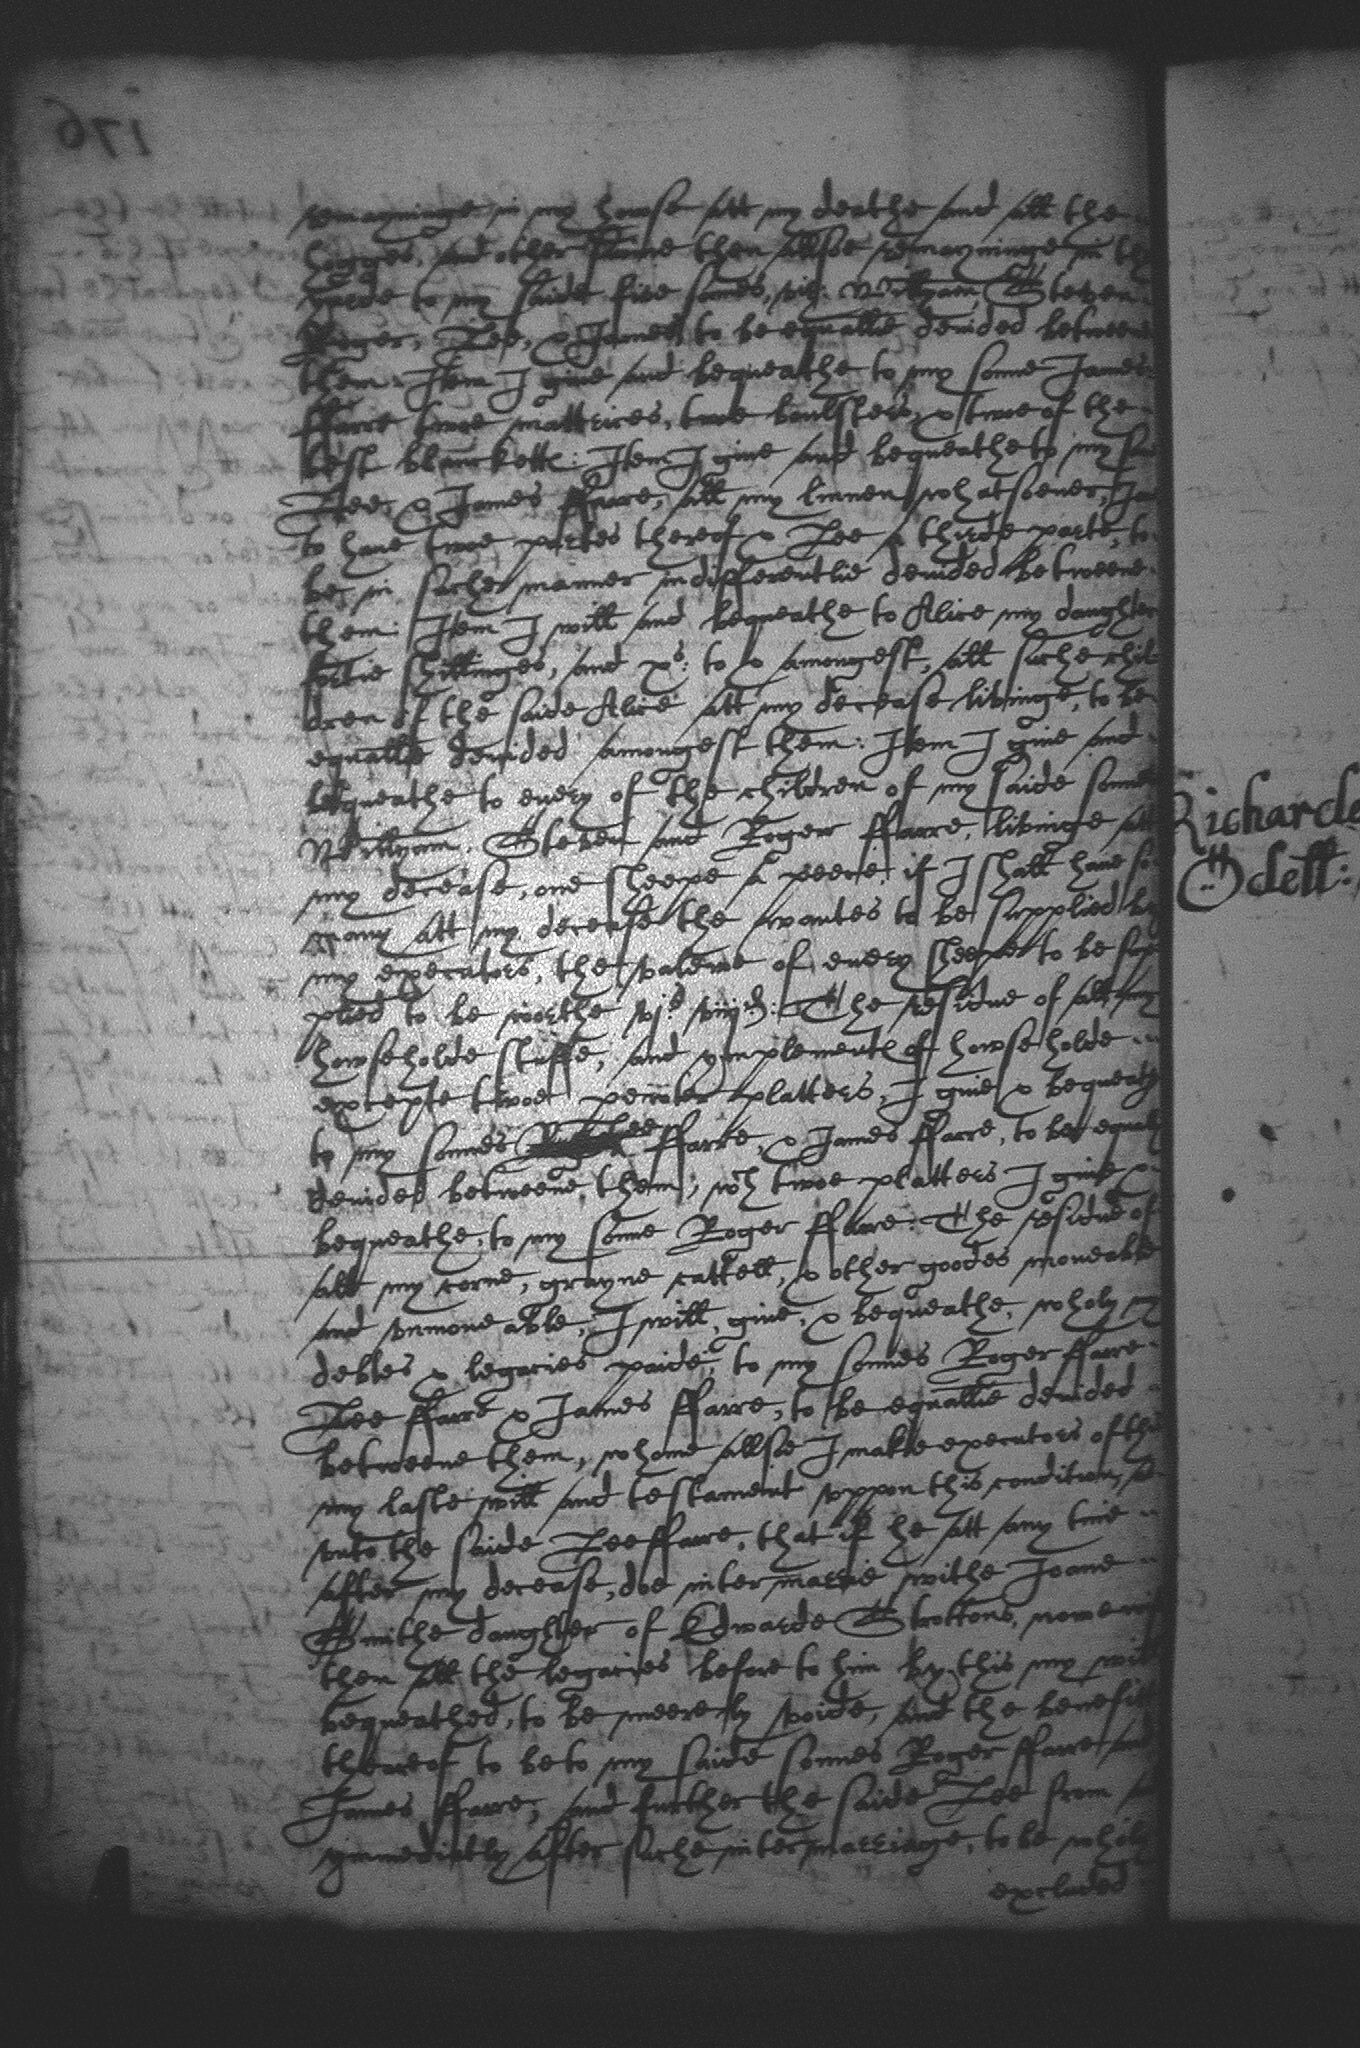 176
remayninge in my howse att my deathe and att the
hogges, and other swine then allso remayninge in the
yarde to my saide five sonnes, viz: Willyam, Steven
Roger, Lee, & James, to be equallie devided betweene
them: Item I give and bequeathe to my sonne James
ffarre twoe mattrices, twoe boulsters, & twoe of the
best blanketts: Item I give and bequeathe to my
Lee, & James ffarre, all my linnen whatsoever,
to have twoe partes thereof & Lee a thirde parte, to
be in suche manner indifferentlie devided betweene
them: Item I will and bequeathe to Alice my daughter
fortie shillinges, and xs: to & amongest, all suche chil
dren of the saide Alice att my decease livinge, to be
equallie devided amongest them: Item I give and
bequeathe to every of the children of my saide sonnes
Willyam, Steven and Roger ffarre, livinge att
my decease, one sheepe a peece, if I shall have so
many att my decease the wantes to be supplied by
my executors, the valewe of every sheepe to be sup
plied to be worthe vjs viijd: The residue of all my
howseholde stuffe, and ymplementes of howseholde
excepte twoe pewter platters, I give & bequeath
to my sonnes Lee ffarre, & James ffarre, to be equaly
devided betweene them, wch twoe platters I give &
bequeathe to my sonne Roger ffarre: The residue of
all my corne, grayne cattell, & other goodes moveable
and unmoveable, I will, give, & bequeathe, wholy my
debtes & legacies paide, to my sonnes Roger ffarre
Lee ffarre & James ffarre, to be equallie devided
betweene them, whome allso I make executors of this
my laste will and testament uppon this condition,
unto the saide Lee ffarre, that if he att any time
after my decease, doe intermarrie withe Joane
Smithe daughter of Edwarde Strottons, nowe
then all the legacies before to him by this my will
bequeathed, to be meerely voide, and the benefitt
thereof to be to my saide sonnes Roger ffarre and
James ffarre, and further the saide Lee from
ymmediatly after suche intermarriage, to be wholy
excluded
Richarde
Odell: